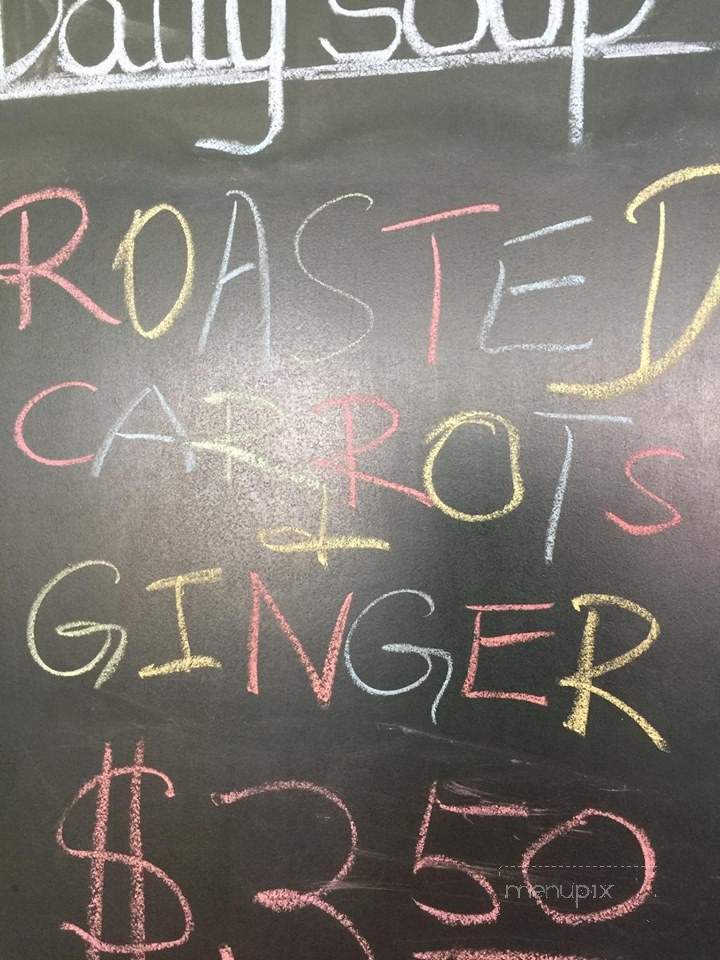 Daily soup
ROASTED
CARROTS
&
GINGER
$3 50
menupix